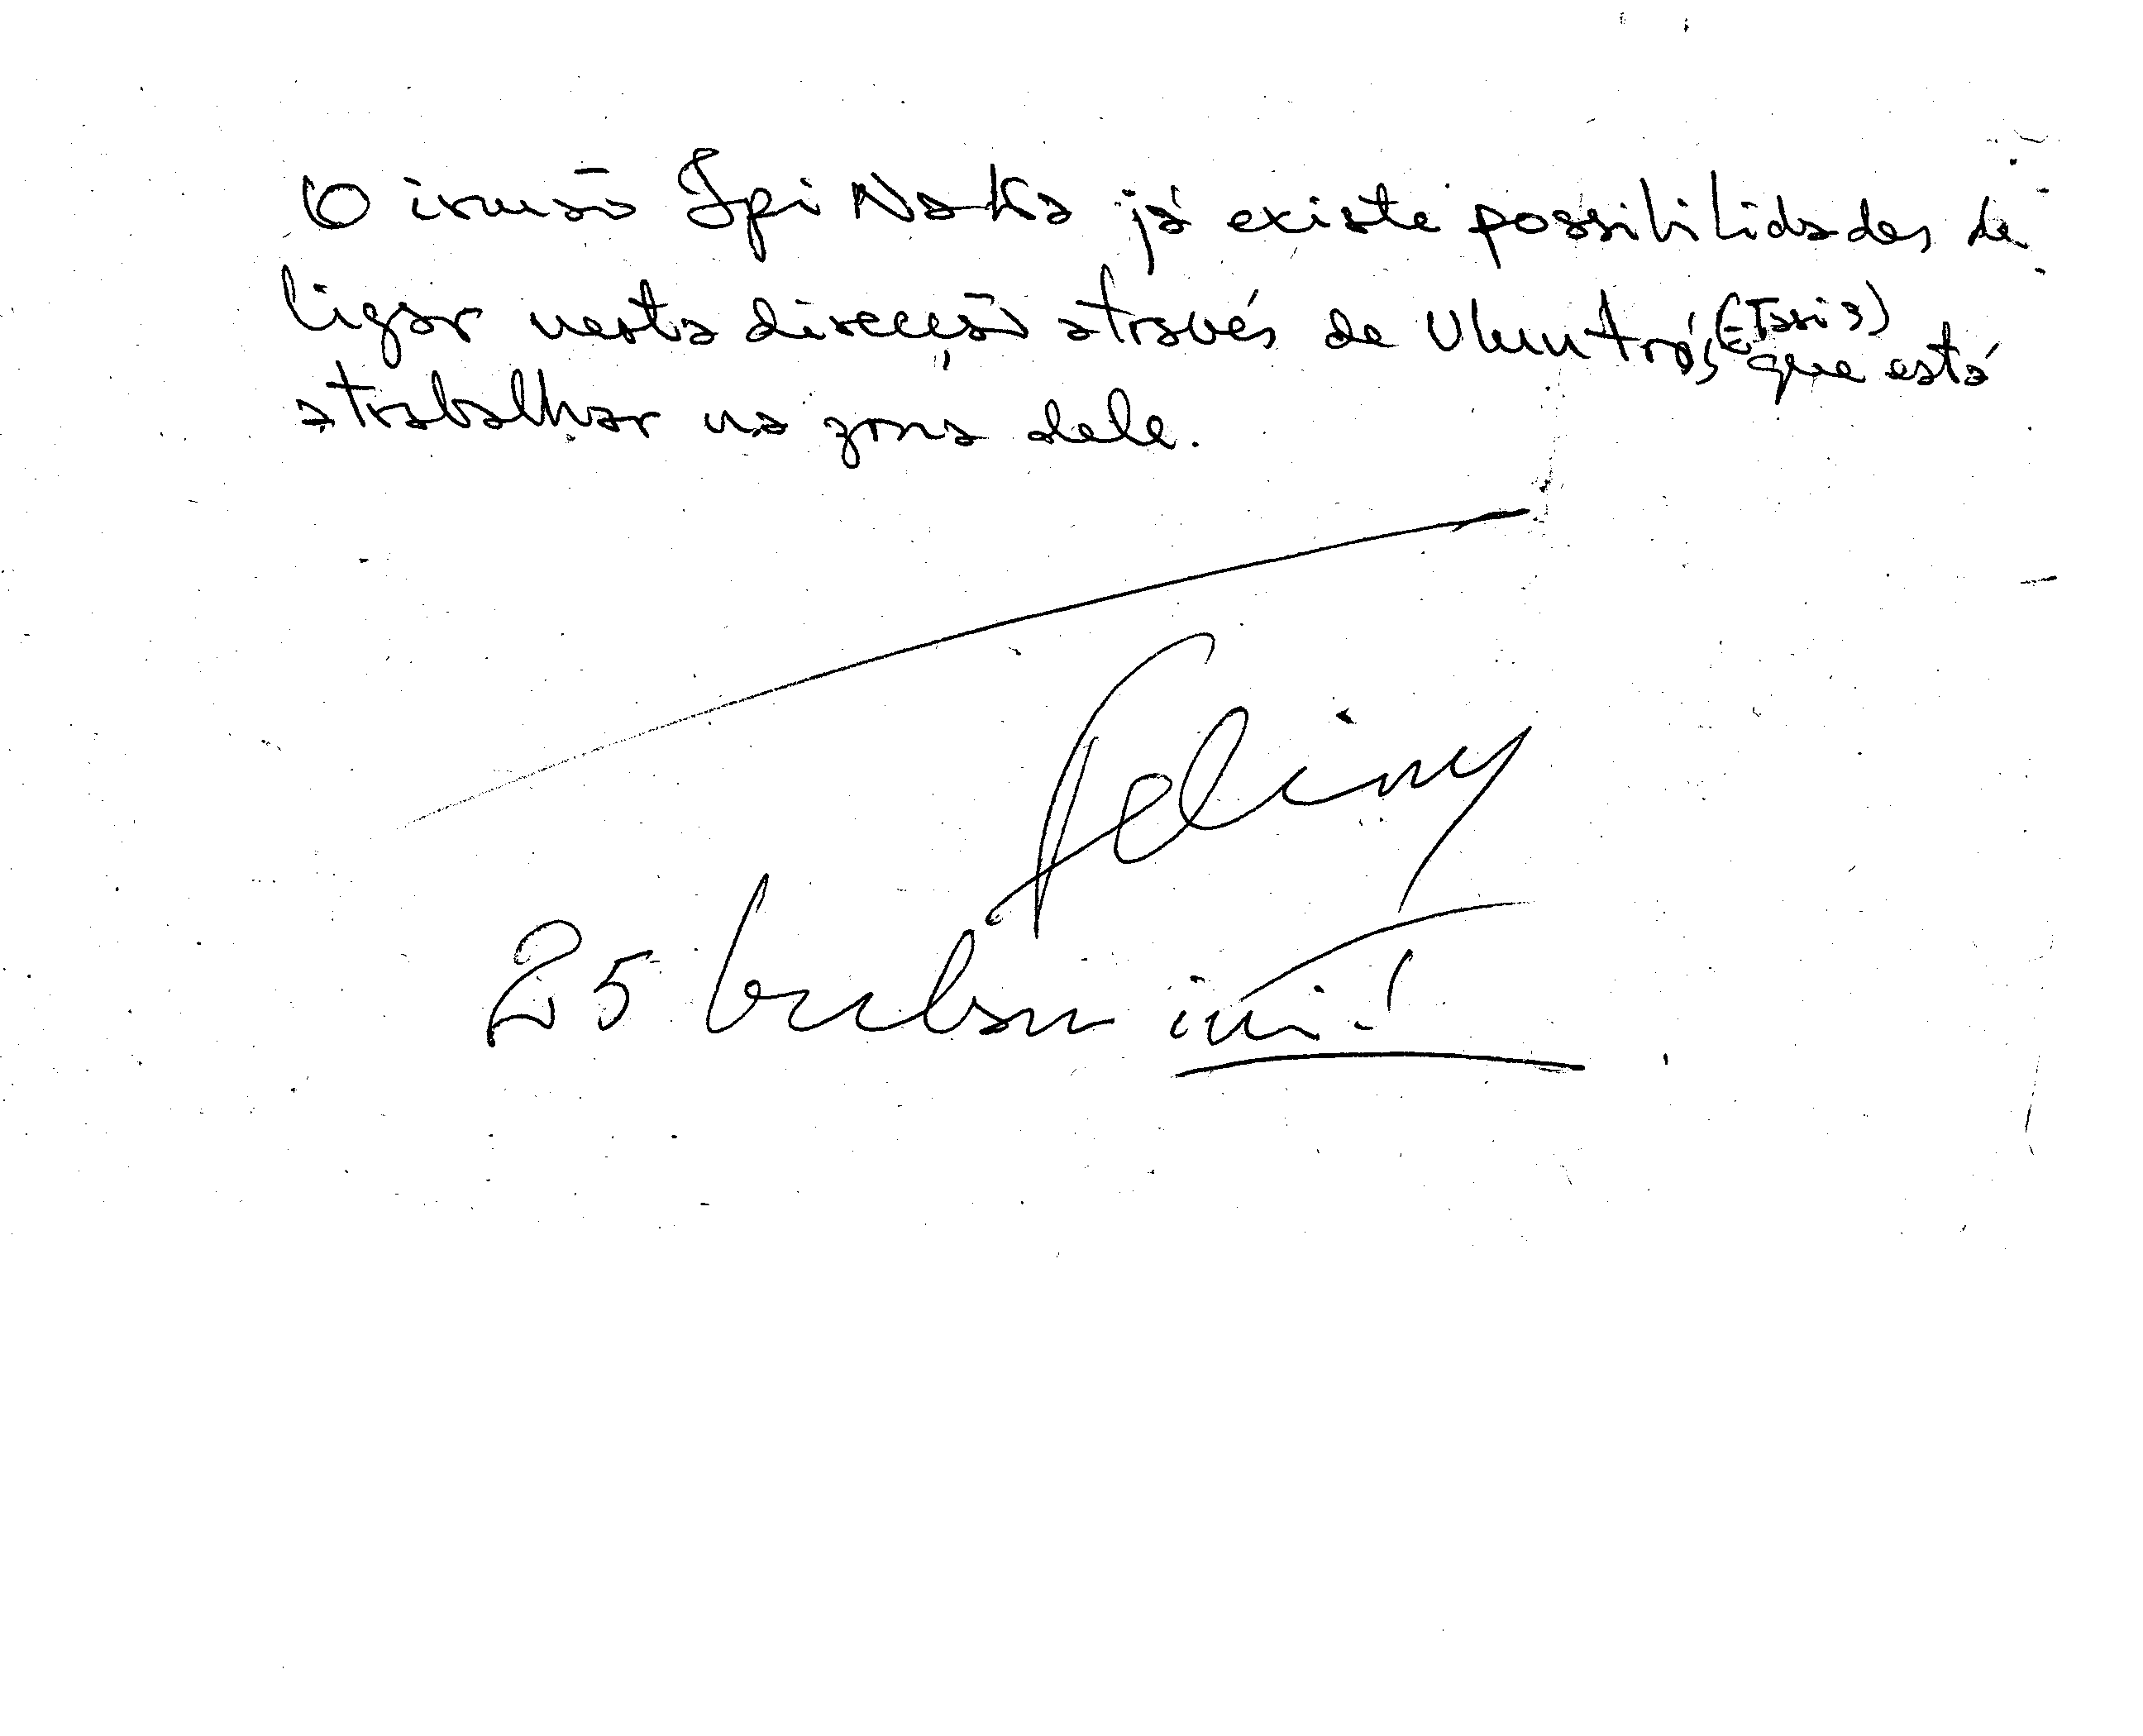 O irmão Ipi Naka já existe possibilidades de
ligar nesta direcção através de Uluntrós, (Etasi 3) que está
a trabalhar na zona dele.
25